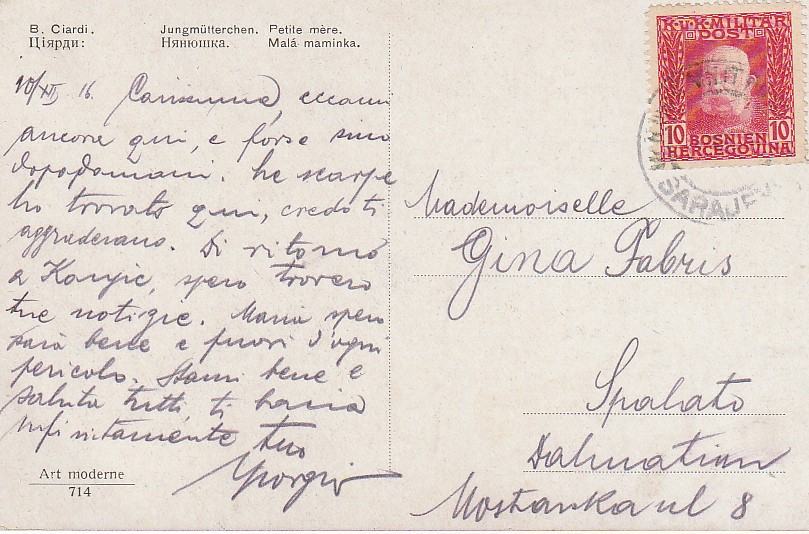 B. Ciardi. Jungmütterchen. Petite mère.
Ціярди: Нянюшка. Malá maminka.
K.u.K. MILITÄR
POST
10 10
BOSNIEN
HERCEGOVINA
SARAJEVO
10/XII 16. Carissima, eccomi
ancora qui, e forse sino
dopodomani. Le scarpe
ho trovato qui, credo ti
aggraderano. Di ritorno
a Konjic, spero troverò
tue notizie. Mama spero
sarà bene e fuori d'ogni
pericolo. Stami bene e
saluta tutti, ti bacia
infinitamente tuo
Giorgio
Mademoiselle
Gina Fabris
Spalato
Dalmatien
Mostarska ul 8
Art moderne
714